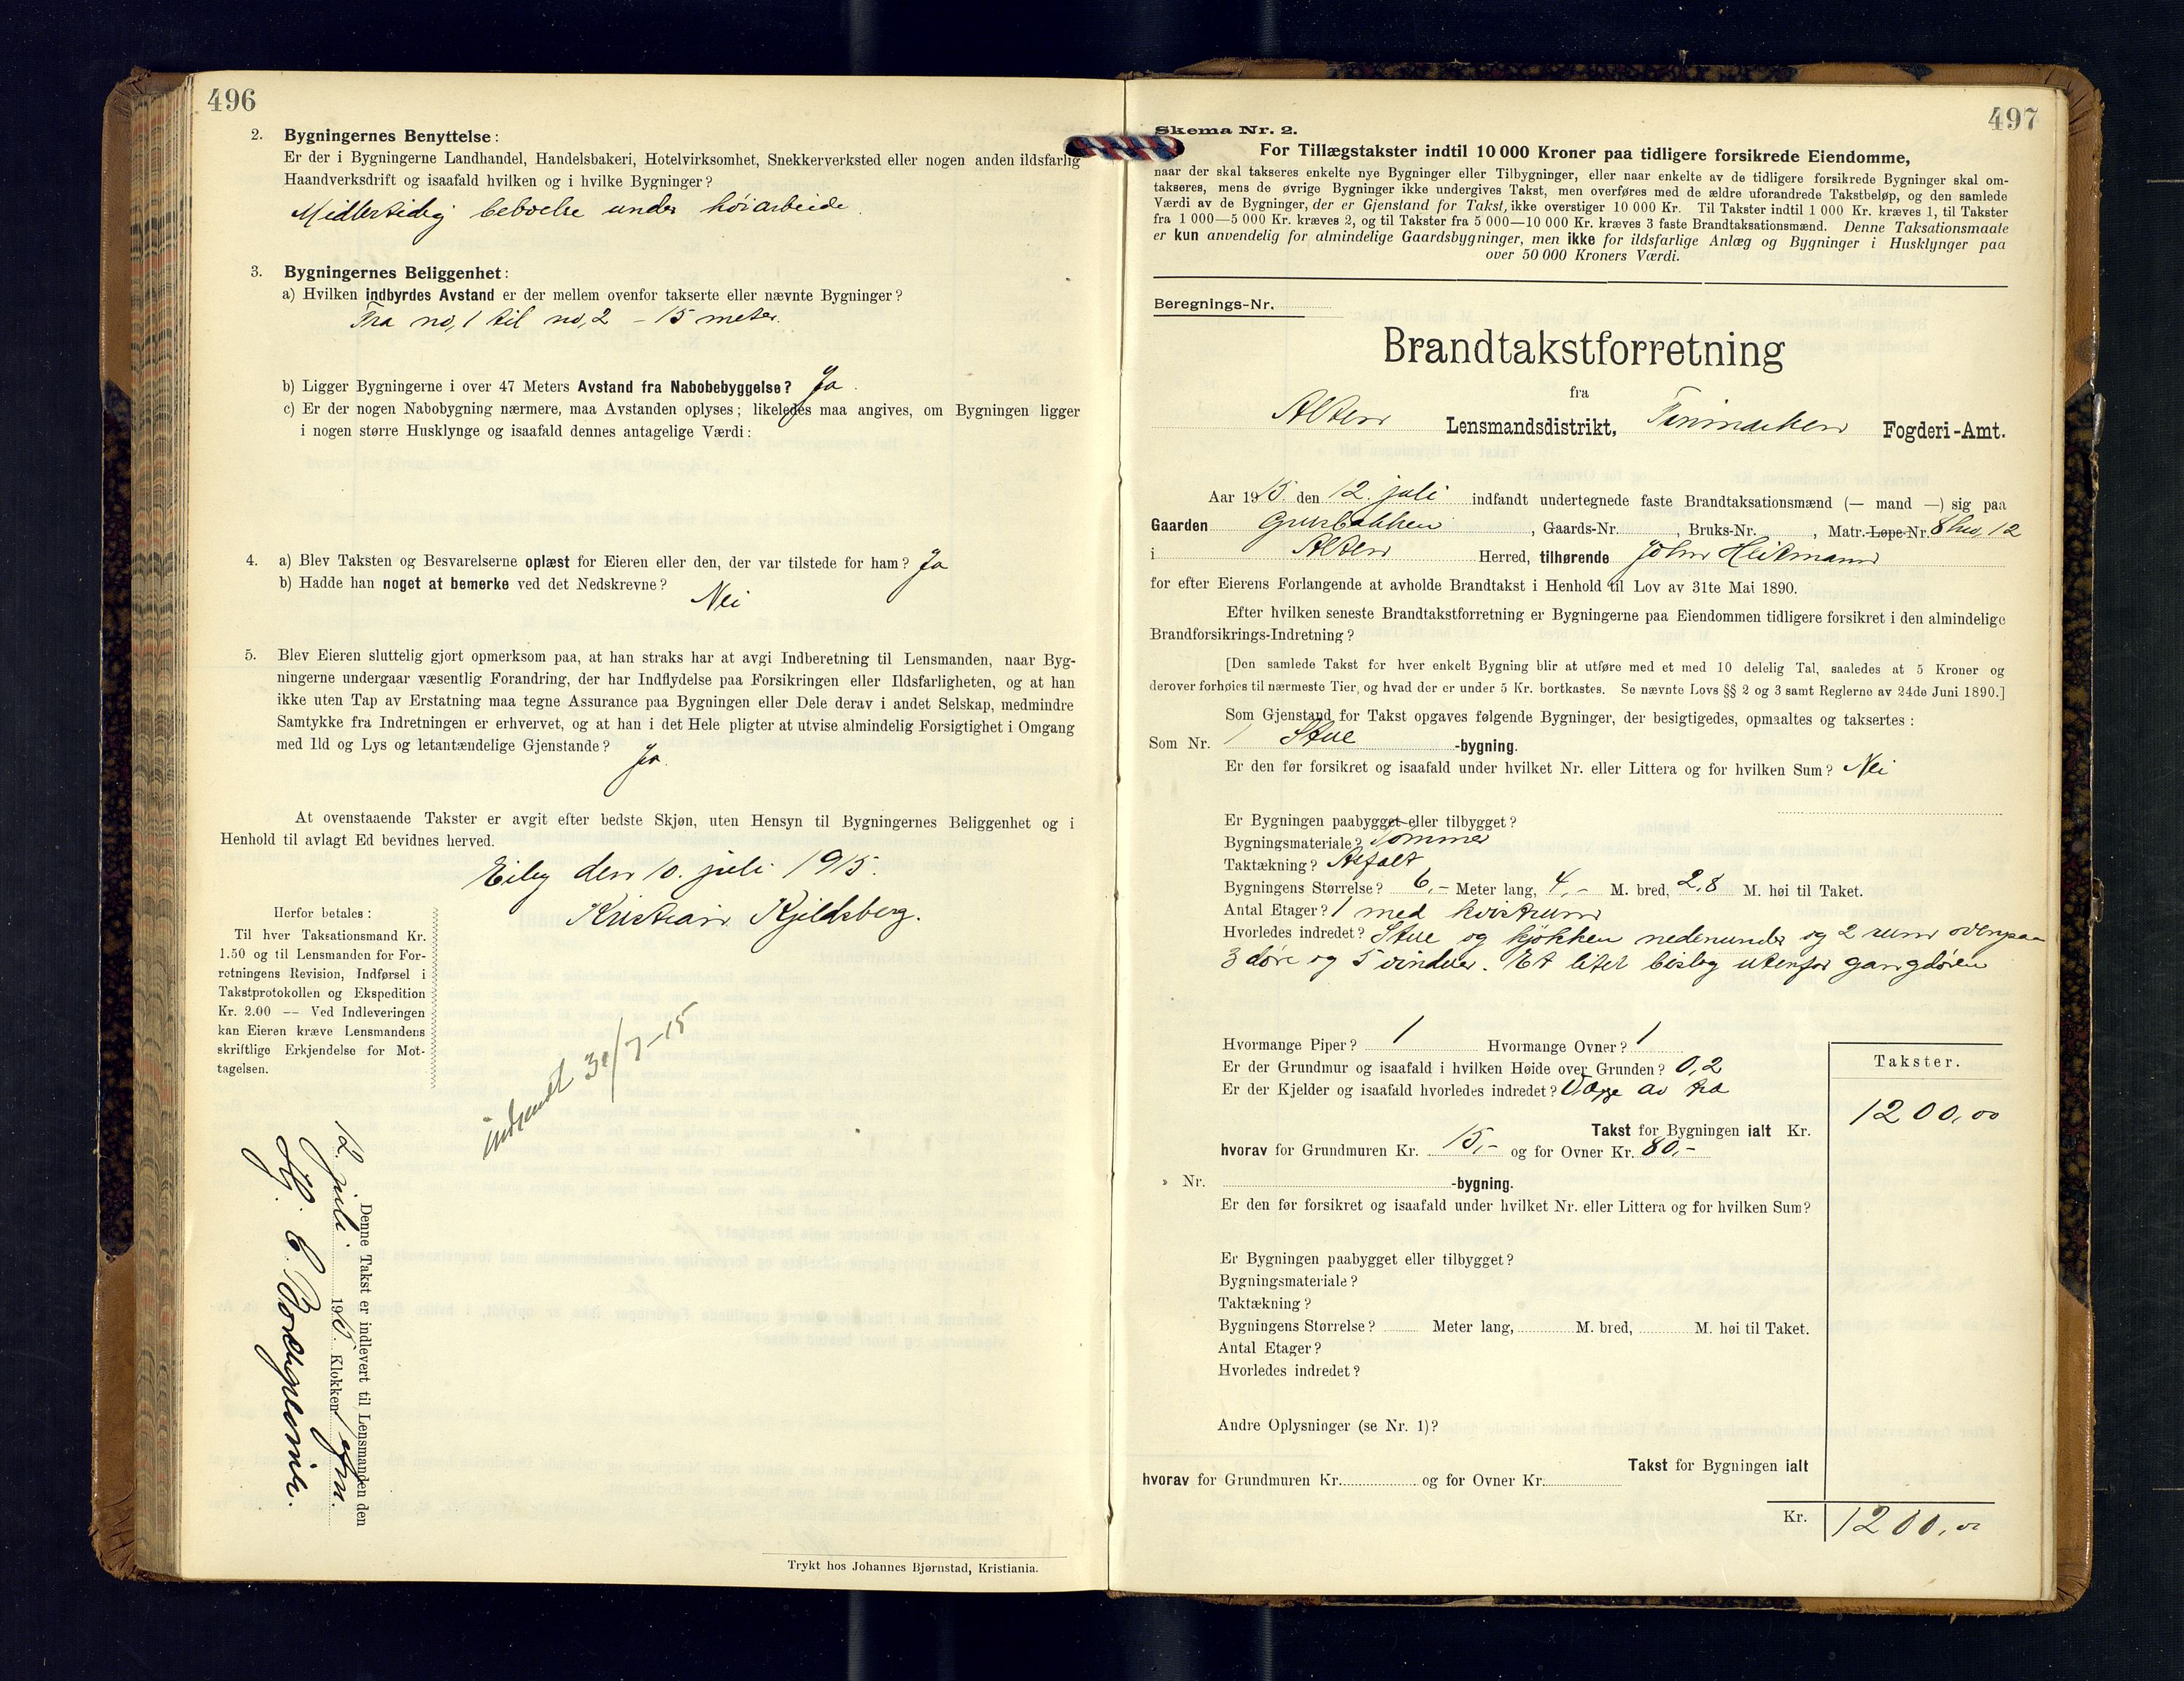 496
2. Bygningernes Benyttelse:
Er der i Bygningerne Landhandel, Handelsbakeri, Hotelvirksomhet, Snekkerverksted eller nogen anden ildsfarlig
Haandverksdrift og isaafald hvilken og i hvilke Bygninger?
Midlertidig beboelse under høiarbeide.
3. Bygningernes Beliggenhet:
a) Hvilken indbyrdes Avstand er der mellem ovenfor takserte eller nævnte Bygninger?
Fra no, 1 til no, 2 - 15 meter.
b) Ligger Bygningerne i over 47 Meters Avstand fra Nabobebyggelse? Ja.
c) Er der nogen Nabobygning nærmere, maa Avstanden oplyses; likeledes maa angives, om Bygningen ligger
i nogen større Husklynge og isaafald dennes antagelige Værdi:
4. a) Blev Taksten og Besvarelserne oplæst for Eieren eller den, der var tilstede for ham? Ja
b) Hadde han noget at bemerke ved det Nedskrevne?
Nei
5. Blev Eieren sluttelig gjort opmerksom paa, at han straks har at avgi Indberetning til Lensmanden, naar Byg-
ningerne undergaar væsentlig Forandring, der har Indflydelse paa Forsikringen eller Ildsfarligheten, og at han
ikke uten Tap av Erstatning maa tegne Assurance paa Bygningen eller Dele derav i andet Selskap, medmindre
Samtykke fra Indretningen er erhvervet, og at han i det Hele pligter at utvise almindelig Forsigtighet i Omgang
med Ild og Lys og letantændelige Gjenstande?
Ja.
At ovenstaaende Takster er avgit efter bedste Skjøn, uten Hensyn til Bygningernes Beliggenhet og i
Henhold til avlagt Ed bevidnes herved.
Eiby den 10. juli 1915.
Kristian Kjeldsberg.
Herfor betales:
Til hver Taksationsmand Kr.
1.50 og til Lensmanden for For-
retningens Revision, Indførsel i
Takstprotokollen og Ekspedition
Kr. 2.00 — Ved Indleveringen
kan Eieren kræve Lensmandens
skriftlige Erkjendelse for Mot-
tagelsen.
indsendt 31/7-15
Denne Takst er indlevert til Lensmanden den
12. juli 1915. Klokken 1 efm.
Trykt hos Johannes Bjørnstad, Kristiania.
497
Skema Nr. 2.
For Tillægstakster indtil 10 000 Kroner paa tidligere forsikrede Eiendomme,
naar der skal takseres enkelte nye Bygninger eller Tilbygninger, eller naar enkelte av de tidligere forsikrede Bygninger skal om-
takseres, mens de øvrige Bygninger ikke undergives Takst, men overføres med de ældre uforandrede Takstbeløp, og den samlede
Værdi av de Bygninger, der er Gjenstand for Takst, ikke overstiger 10 000 Kr. Til Takster indtil 1 000 Kr. kræves 1, til Takster
fra 1 000—5 000 Kr. kræves 2, og til Takster fra 5 000—10 000 Kr. kræves 3 faste Brandtaksationsmænd. Denne Taksationsmaate
er kun anvendelig for almindelige Gaardsbygninger, men ikke for ildsfarlige Anlæg og Bygninger i Husklynger paa
over 50 000 Kroners Værdi.
Beregnings-Nr.
Brandtakstforretning
fra
Alten Lensmandsdistrikt, Finmarken Fogderi-Amt.
Aar 1915. den 12. juli indfandt undertegnede faste Brandtaksationsmænd (— mand —) sig paa
Gaarden Grusbakken, Gaards-Nr. , Bruks-Nr. , Matr.-Løpe-Nr. 8 12
i Alten Herred, tilhørende John Heitmann
for efter Eierens Forlangende at avholde Brandtakst i Henhold til Lov av 31te Mai 1890.
Efter hvilken seneste Brandtakstforretning er Bygningerne paa Eiendommen tidligere forsikret i den almindelige
Brandforsikrings-Indretning?
[Den samlede Takst for hver enkelt Bygning blir at utføre med et med 10 delelig Tal, saaledes at 5 Kroner og
derover forhøies til nærmeste Tier, og hvad der er under 5 Kr. bortkastes. Se nævnte Lovs §§ 2 og 3 samt Reglerne av 24de Juni 1890.]
Som Gjenstand for Takst opgaves følgende Bygninger, der besigtigedes, opmaaltes og taksertes:
Som Nr. 1 Stue -bygning.
Er den før forsikret og isaafald under hvilket Nr. eller Littera og for hvilken Sum? Nei
Er Bygningen paabygget eller tilbygget?
Bygningsmateriale? Tømmer
Taktækning? Asfalt
Bygningens Størrelse? 6,- Meter lang, 4,- M. bred, 2,8 M. høi til Taket.
Antal Etager? 1 med kvistrum
Hvorledes indredet? Stue og kjøkken nedenunder og 2 rum ovenpaa
3 døre og 5 vinduer. Et litet bislag utenfor gangdøren
Hvormange Piper? 1 Hvormange Ovner? 1
Er der Grundmur og isaafald i hvilken Høide over Grunden? 0,2
Er der Kjelder og isaafald hvorledes indredet? Vægge av træ
Takster.
Takst for Bygningen ialt Kr. 1200,00
hvorav for Grundmuren Kr. 15,- og for Ovner Kr. 80,-
» Nr. -bygning.
Er den før forsikret og isaafald under hvilket Nr. eller Littera og for hvilken Sum?
Er Bygningen paabygget eller tilbygget?
Bygningsmateriale?
Taktækning?
Bygningens Størrelse? Meter lang, M. bred, M. høi til Taket.
Antal Etager?
Hvorledes indredet?
Andre Oplysninger (se Nr. 1)?
Takst for Bygningen ialt
hvorav for Grundmuren Kr. og for Ovner Kr.
Kr. 1200,00